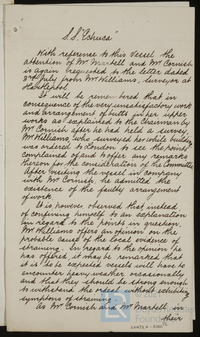 S.S. "Estruca"
With reference to this Vessel the
attention of Mr Martell and Mr Cornish
is again requested to the letter dated
3rd July from Mr Williams, Surveyor at
Hartlepool.
It will be remembered that in
consequence of the very unsatisfactory work
and arrangement of butts in her upper
works as explained to the Chairman by
Mr Cornish after he had held a survey,
Mr Williams, who surveyed her while building
was ordered to London to see the points
complained of and to offer any remarks
thereon for the consideration of the Committee.
After viewing the vessel in company
with Mr Cornish, he admitted the
existence of the faulty arrangement
of work.
It is however observed that instead
of confining himself to an explanation
in regard to the points in question,
Mr Williams offers an opinion on the
probable cause of the local evidence of
straining. In regard to the opinion
has offered it may be remarked that
it is to be expected vessels will have to
encounter heavy weather occasionally
and that they should be strong enough
to withstand the same without exhibiting
symptoms of straining.
As Mr Cornish and Mr Martell in
their